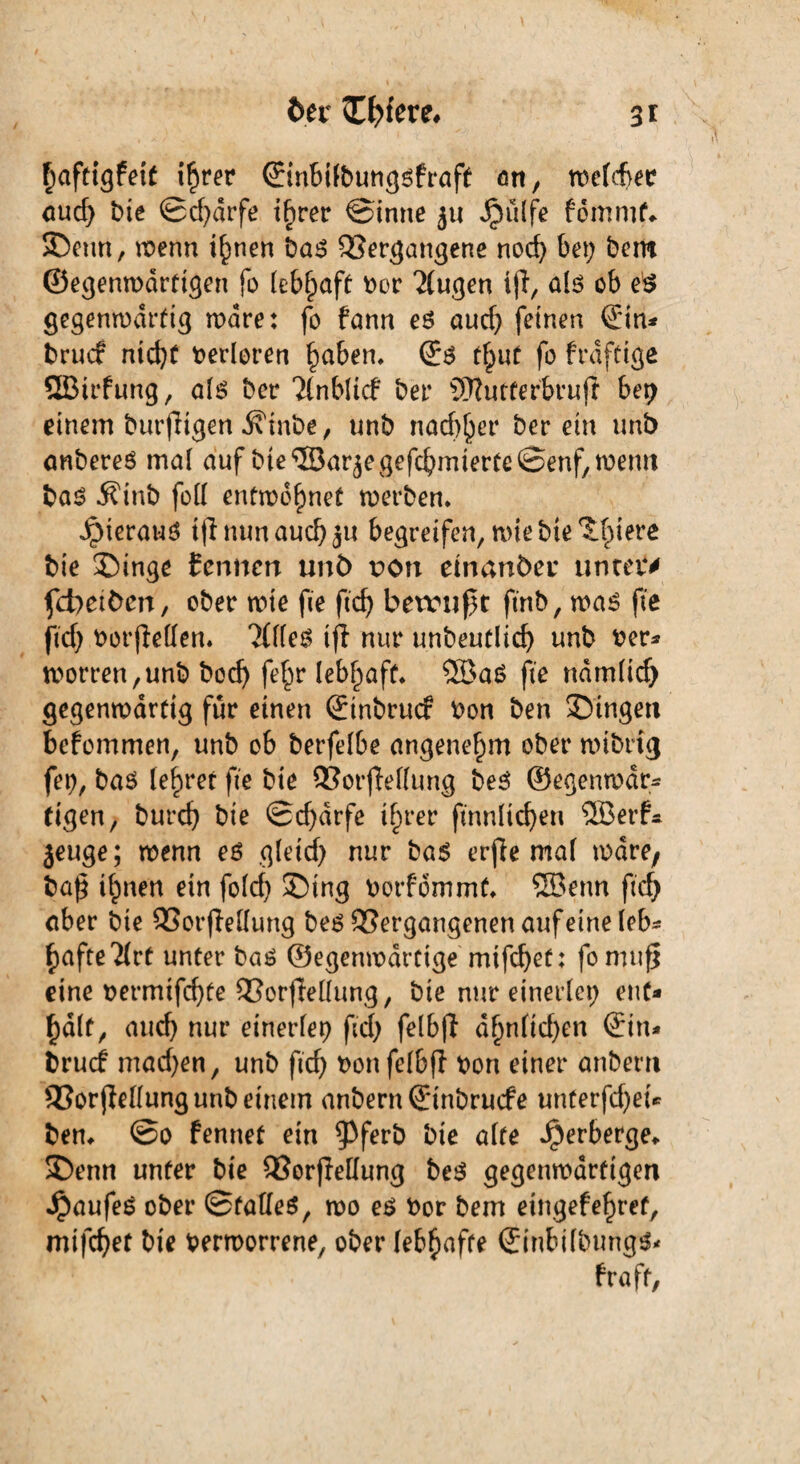 der Thiere. 31
haftigkeit ihrer Einbildungskraft an, welcher
auch die Schärfe ihrer Sinne zu Hülfe kömmt.
Denn, wenn ihnen das Vergangene noch bey dem
Gegenwärtigen so lebhaft vor Augen ist, als ob es
gegenwärtig wäre: so kann es auch seinen Ein-
druck nicht verloren haben. Es thut so kräftige
Wirkung, als der Anblick der Mutterbrust bey
einem durstigen Kinde, und nachher der ein und
anderes mal auf die Warze geschmierte Senf, wenn
das Kind soll entwöhnet werden.
Hieraus ist nun auch zu begreifen, wie die Thiere
die Dinge kennen und von einander unter-
scheiden, oder wie sie sich bewußt sind, was sie
sich vorstellen. Alles ist nur undeutlich und ver-
worren, und doch sehr lebhaft. Was sie nämlich
gegenwärtig für einen Eindruck von den Dingen
bekommen, und ob derselbe angenehm oder widrig
sey, das lehret sie die Vorstellung des Gegenwär-
tigen, durch die Schärfe ihrer sinnlichen Werk-
zeuge; wenn es gleich nur das erste mal wäre,
daß ihnen ein solch Ding vorkömmt. Wenn sich
aber die Vorstellung des Vergangenen auf eine leb-
hafte Art unter das Gegenwärtige mischet: so muß
eine vermischte Vorstellung, die nur einerley ent-
hält, auch nur einerley sich selbst ähnlichen Ein-
druck machen, und sich von selbst von einer andern
Vorstellung und einem andern Eindrucke unterschei-
den. So kennet ein Pferd die alte Herberge.
Denn unter die Vorstellung des gegenwärtigen
Hauses oder Stalles, wo es vor dem eingekehret,
mischet die verworrene, oder lebhafte Einbildungs-
kraft,